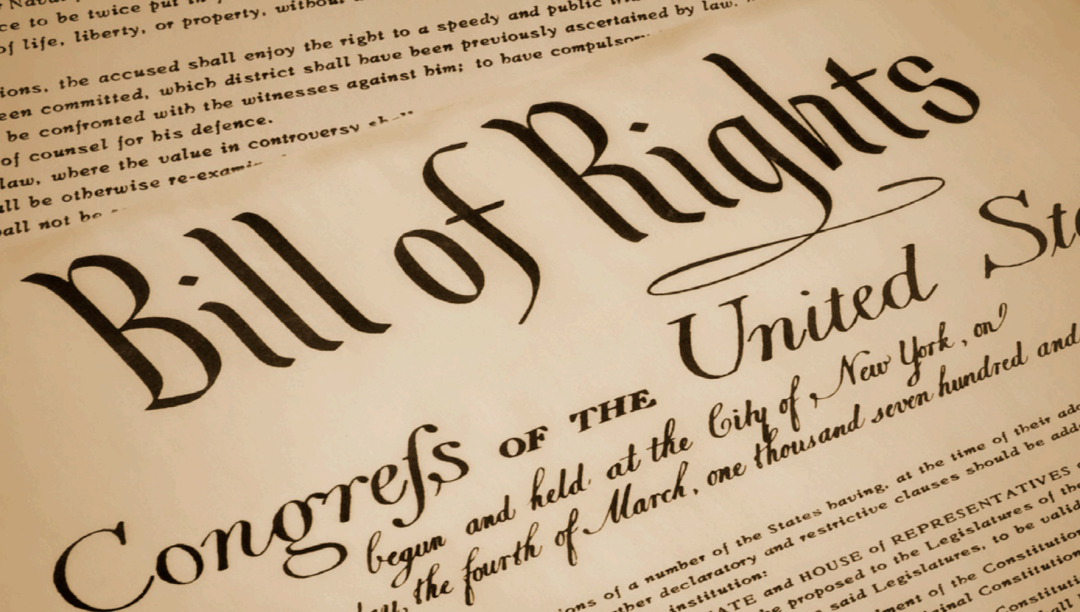 ce to be twice put in
of life, liberty, or property, without
ions, the accused shall enjoy the right to a speedy and public
een committed, which district shall have been previously ascertained by law,
be confronted with the witnesses against him; to have compulsory
of counsel for his defence.
law, where the value in controversy
all be otherwise re-exam
all not be
Bill of Rights
Congreſs OF THE United Sta
begun and held at the City of New York, on
the fourth of March, one thousand seven hundred and
ons of a number of the States having, at the time of their ado
ther declaratory and restrictive clauses should be adde
institution:
ATE and HOUSE of REPRESENTATIVES
be proposed to the Legislatures of the
said Legislatures, to be valid
ment of the Constitution
inal Constitution